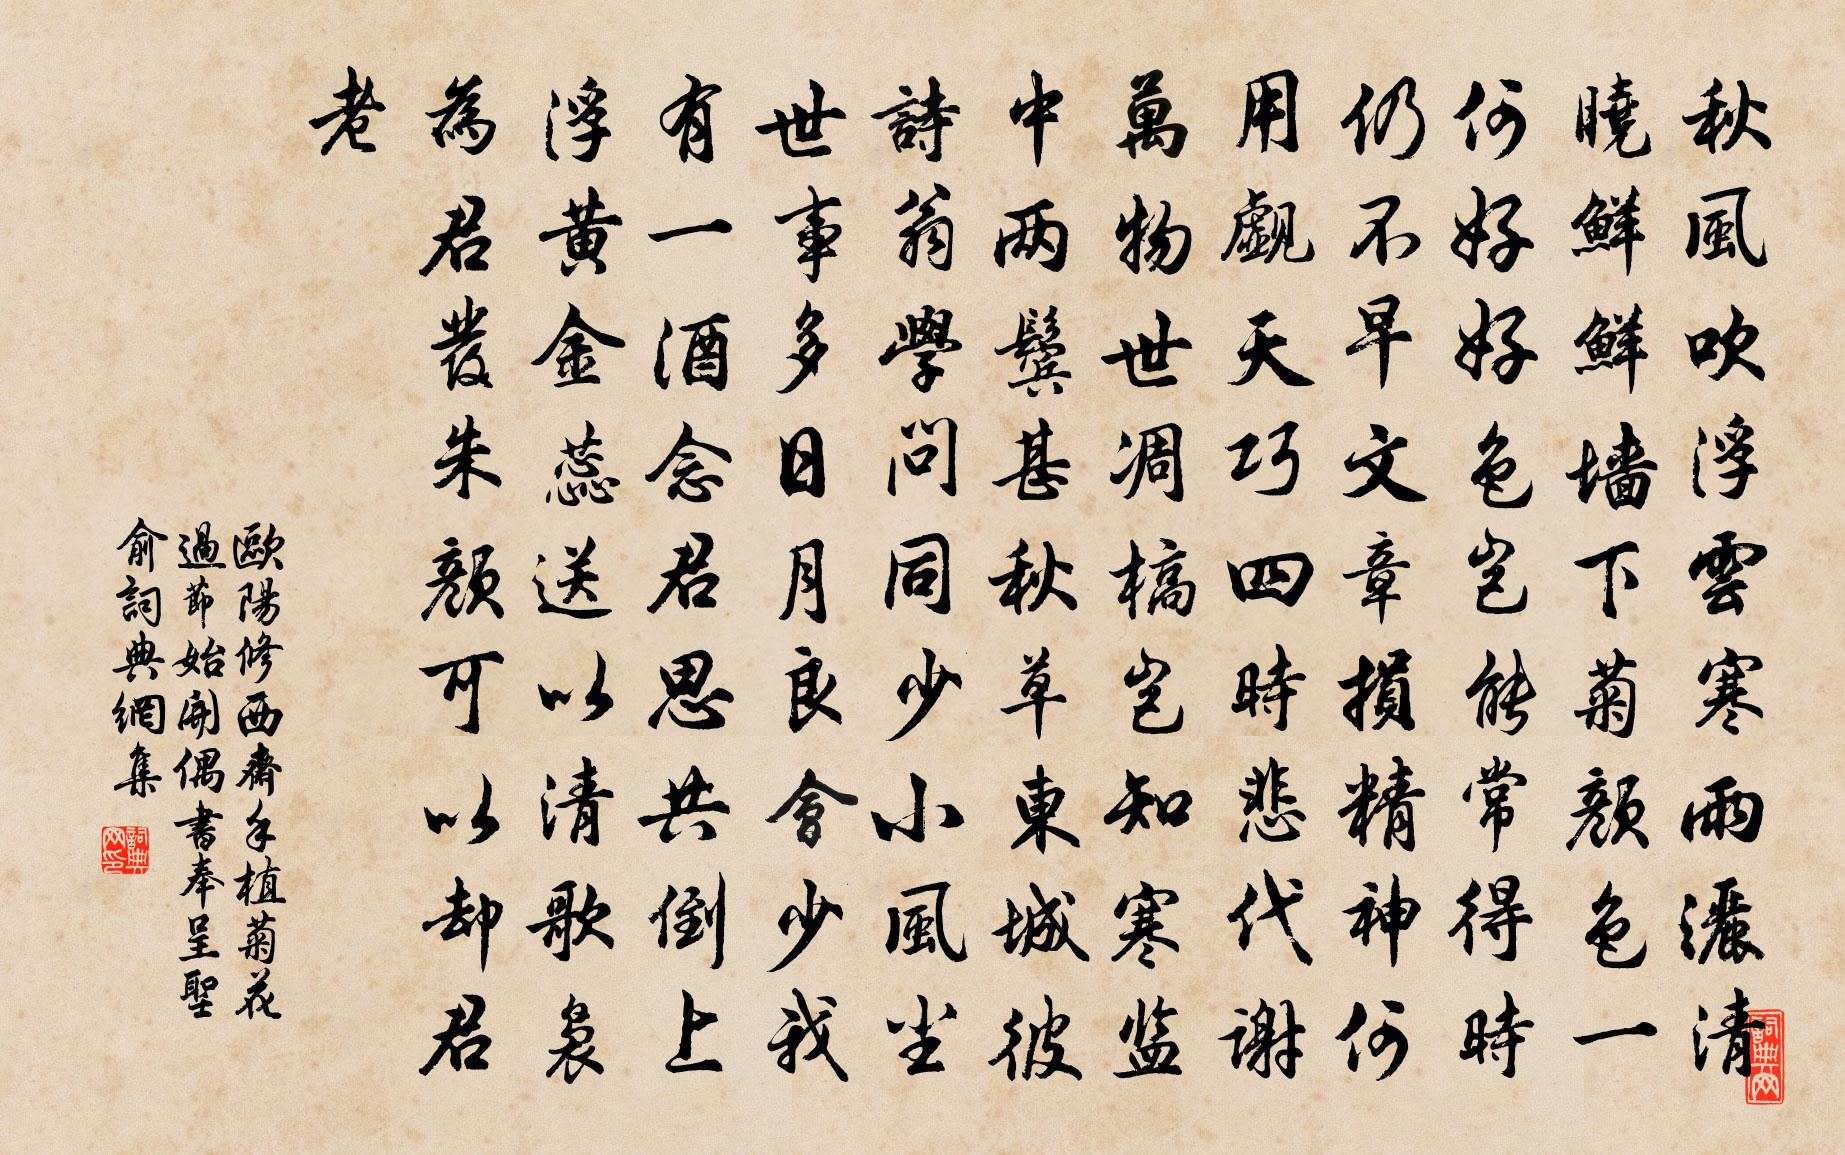 秋風吹浮雲寒雨灑清
曉鮮鮮墻下菊顏色一
何好好色豈能常得時
仍不早文章損精神何
用覷天巧四時悲代謝
萬物世凋槁豈知寒監
中兩鬢甚秋草東城彼
詩翁學問同少小風塵
世事多日月良會少我
有一酒念君思共倒上
浮黃金蕊送以清歌裊
為君發朱顏可以却君
老
歐陽修西齋手植菊花
過節始開偶書奉呈聖
俞詞典網集
詞典网
詞典网印